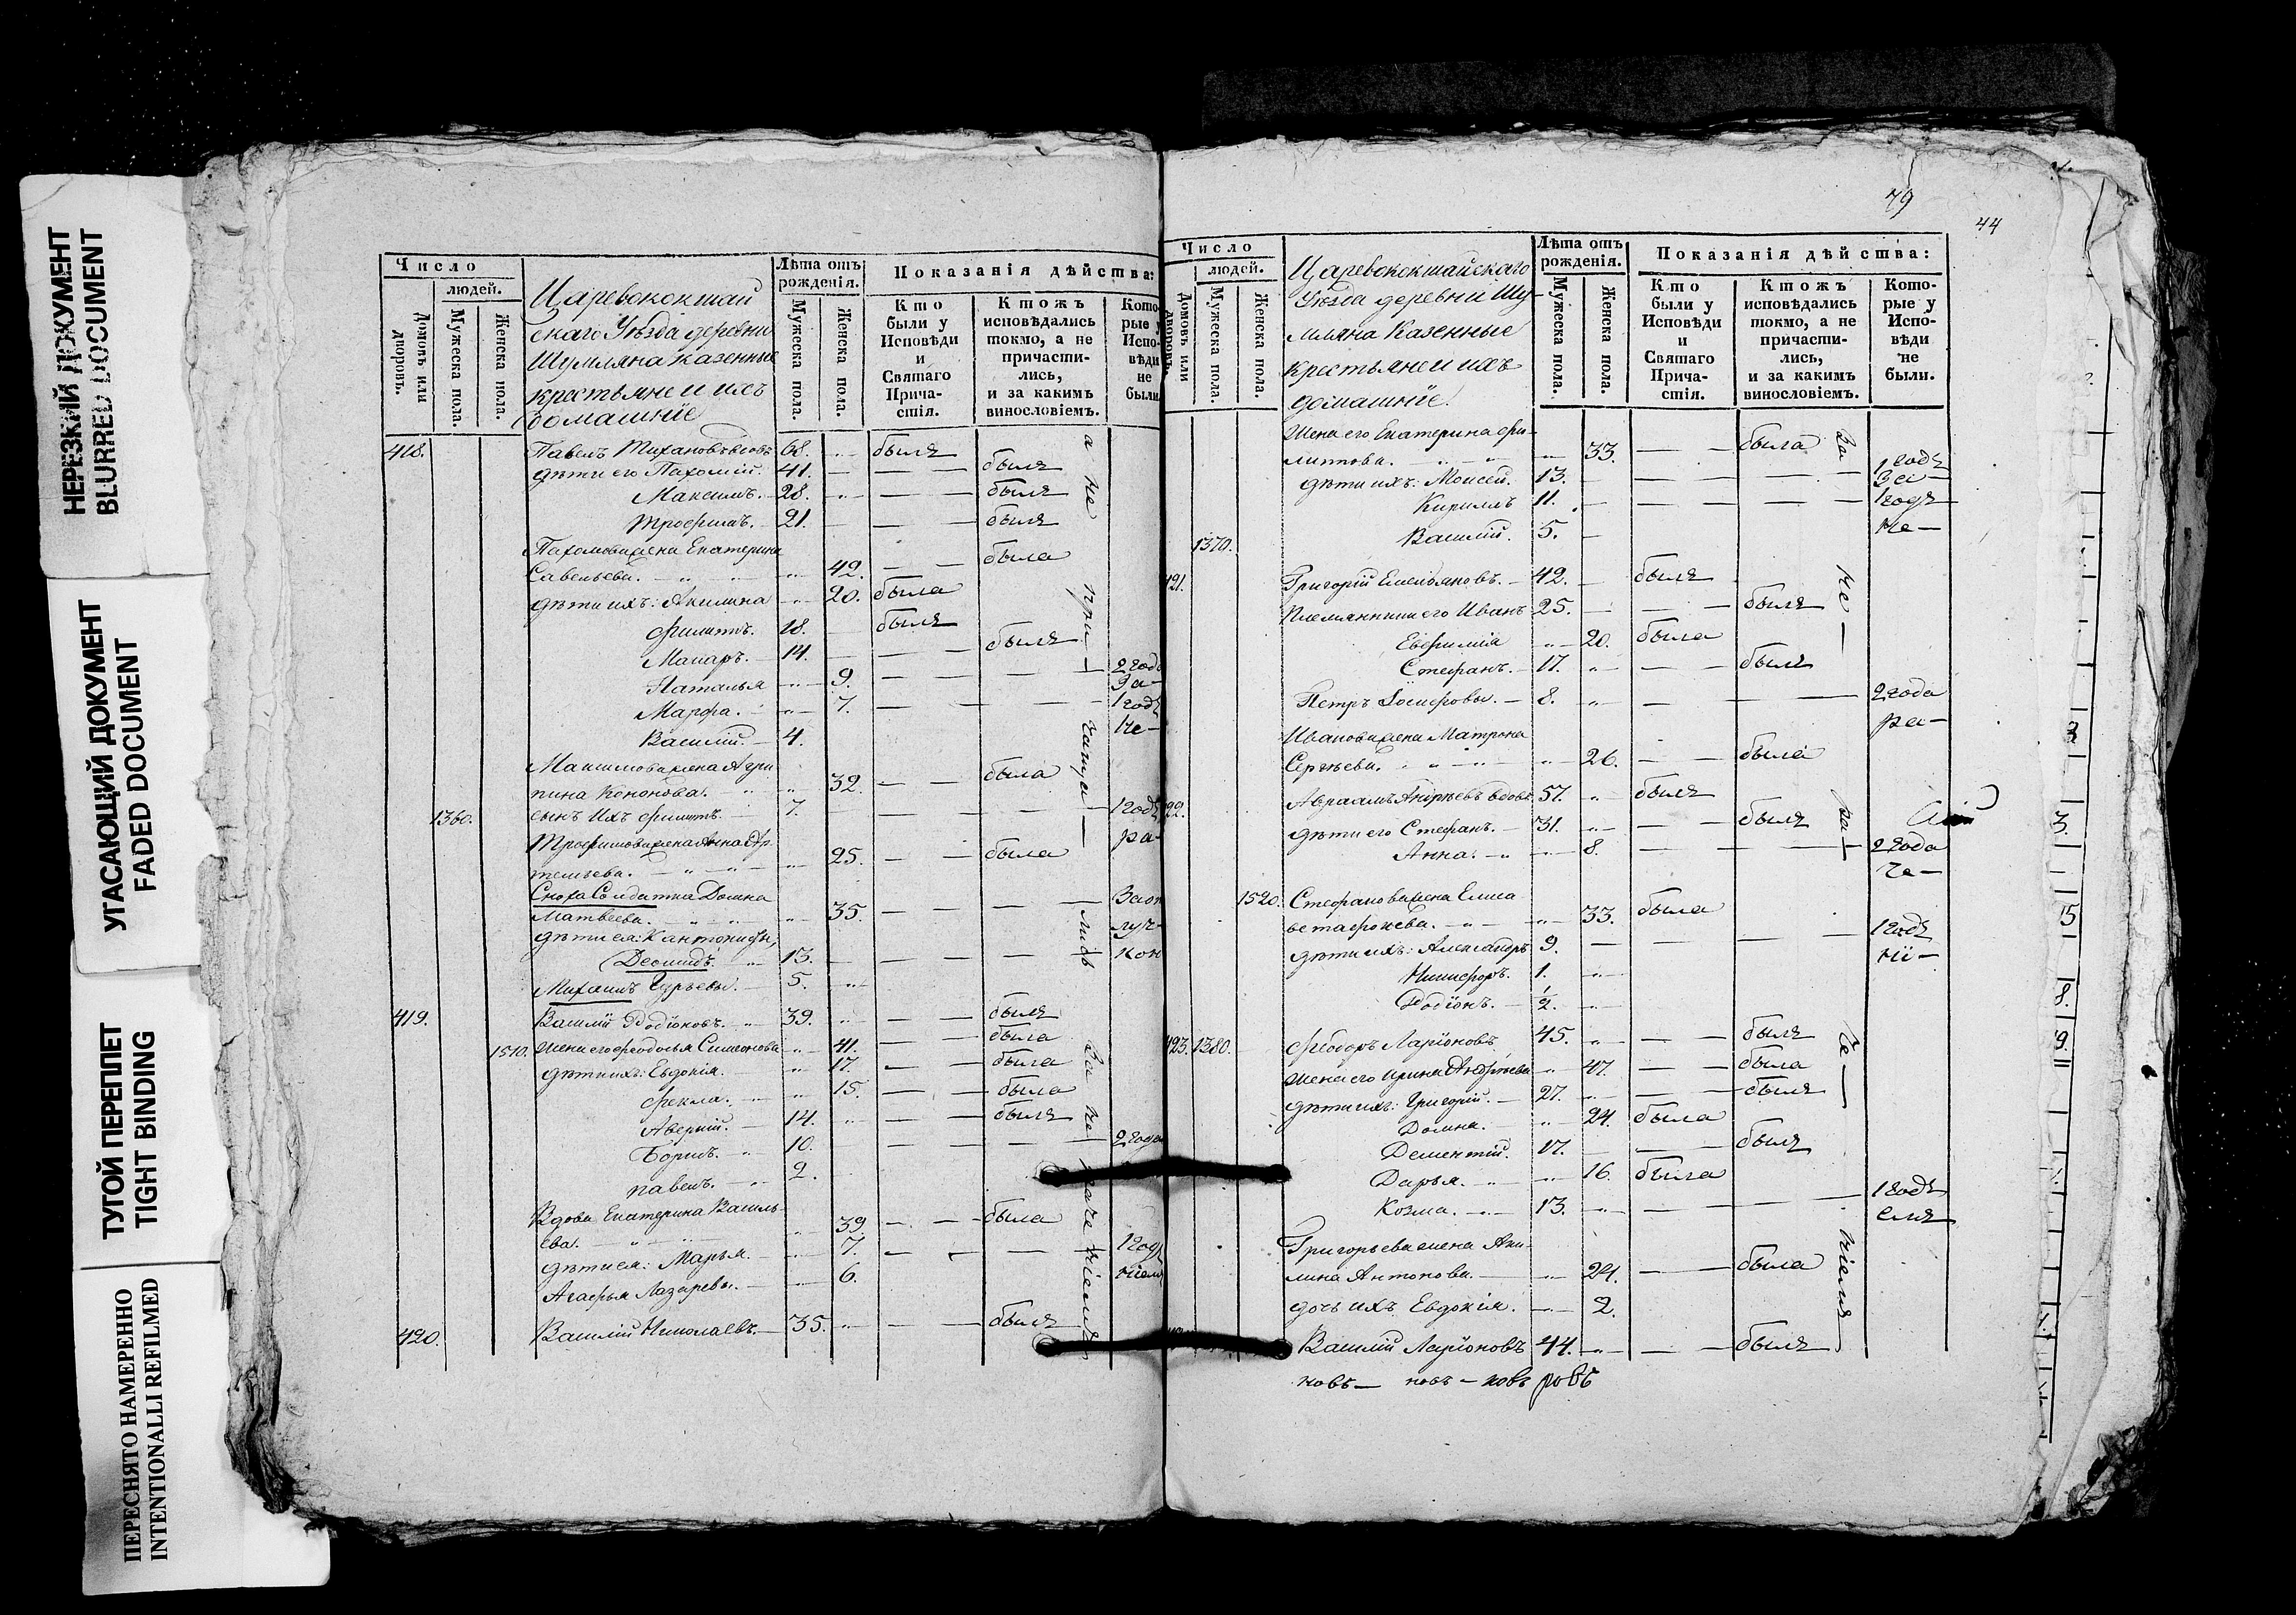 НЕРЕЗКИЙ ДОКУМЕНТ
BLURRED DOCUMENT
УГАСАЮЩИЙ ДОКУМЕНТ
FADED DOCUMENT
ТУГОЙ ПЕРЕПЛЕТ
TIGHT BINDING
ПЕРЕСНЯТО НАМЕРЕННО
INTENTIONALLI REFILMED
Число
людей.
Домовъ или дворовъ.
Мужеска пола.
Женска пола.
Царевококшай
скаго Уѣзда деревни
Шумляна казенные
крестьяне и ихъ
домашнїе
Лѣта отъ рождения.
Мужеска пола.
Женска пола.
Показанія дѣйства:
Кто были у Исповѣди и Святаго Прича-стія.
Ктожъ исповѣдались токмо, а не причасти-лись, и за какимъ винословіемъ.
Кото-рые у Испо-вѣди не были
418. Павелъ 68. былъ
дѣти его Пахомій. 41. былъ
Максимъ. 28. былъ
Трофимъ. 21. былъ
Пахомова жена Екатерина
Савельева. 42. была
дѣти ихъ: Акилина 20. была
Филиппъ. 18. былъ
Макаръ. 14. былъ
Наталья 9. 2 года
Марфа. 7. 1 годъ
Василій. 4.
Максимова жена Агри
пина Кононова. 32. была
1360. сынъ ихъ Филиппъ. 7. 1 годъ
Трофимова жена Анна
25. была
Сноха Солдатка Домна
Матвеева. 35.
дѣти ея: Кантонисты,
Леонидъ. 13.
Михаилъ Гурьевы. 5.
419. Василій Родіоновъ. 39. былъ
1510. Жена его Феодосья Симеонова 41. была
дѣти ихъ: Евдокія. 17. была
Фекла. 15. была
Аверкій. 14. былъ
Борисъ. 10. 2 года
павелъ. 2.
Вдова Екатерина Василь
ева. 39. была
дѣти ея: Марья. 7. 1 годъ
Агафья Лазаревы. 6.
420. Василій Николаевъ. 35. былъ
79
44
Число
людей.
Домовъ или дворовъ.
Мужеска пола.
Женска пола.
Царевококшайскаго
Уѣзда деревни Шу-
мляна Казенные
крестьяне и ихъ
домашнїе.
Лѣта отъ рождения.
Мужеска пола.
Женска пола.
Показанія дѣйства:
Кто были у Исповѣди и Святаго Прича-стія.
Ктожъ исповѣдались токмо, а не причасти-лись, и за какимъ винословіемъ.
Кото-рые у Испо-вѣди не были.
Жена его Екатерина Фи-
липпова. 33. была
дѣти ихъ: Моисей. 13. 1 годъ
Кирилъ 11. 1 годъ
1370. Василій. 5.
421. Григорій Емельяновъ. 42. былъ
Племянники его Иванъ 25. былъ
Евфимія 20. была
Стефанъ. 17. былъ
Петръ Іосифовы. 8. 2 года
Иванова жена Матрона
Сергѣева. 26. была
422. Авраамъ Андрѣевъ вдовъ 57. былъ
дѣти его Стефанъ. 31. былъ
Анна. 8. 2 года
1520. Стефанова жена Елиса
вета 33. была
дѣти ихъ: Александръ 9. 1 годъ
Никифоръ. 1.
Родіонъ. 1/2.
423. 1380. Ѳеодоръ Ларіоновъ 45. былъ
Жена его Ирина Андрѣева 47. была
дѣти ихъ: Григорій. 27. былъ
Домна. 24. была
Дементій. 17. былъ
Дарья. 16. была
Козма. 13. 1 годъ
Григорьева жена Аки-
лина Антонова. 24. была
дочь ихъ Евдокія. 2.
Василій Ларіоновъ 44. былъ
новъ — новъ — новъ ровъ